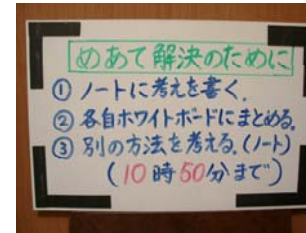 めあて解決のために
① ノートに考えを書く。
② 各自ホワイトボードにまとめる。
③ 別の方法を考える。(ノート)
(10時50分まで)